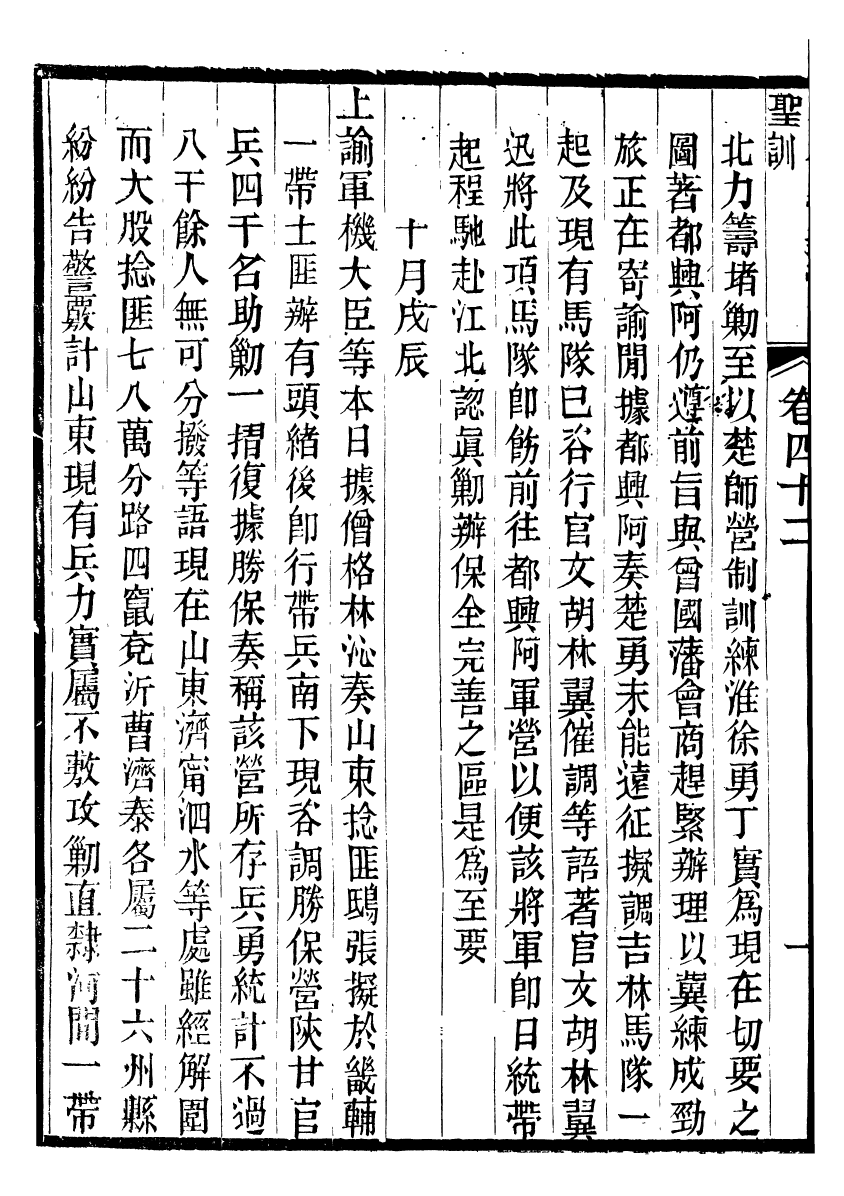 聖訓
卷四十二
一
北力籌堵勦至以楚師營制訓練淮徐勇丁實爲現在切要之
圖著都興阿仍遵前旨與曾國藩會商趕緊辦理以冀練成勁
旅正在寄諭閒據都興阿奏楚勇未能遠征擬調吉林馬隊一
起及現有馬隊已咨行官文胡林翼催調等語著官文胡林翼
迅將此項馬隊卽飭前往都興阿軍營以便該將軍卽日統帶
起程馳赴江北認眞勦辦保全完善之區是爲至要
十月戊辰
上諭軍機大臣等本日據僧格林沁奏山東捻匪鴟張擬於畿輔
一帶土匪辦有頭緒後卽行帶兵南下現咨調勝保營陜甘官
兵四千名助勦一摺復據勝保奏稱該營所存兵勇統計不過
八千餘人無可分撥等語現在山東濟甯泗水等處雖經解圍
而大股捻匪七八萬分路四竄兗沂曹濟泰各屬二十六州縣
紛紛告警覈計山東現有兵力實屬不敷攻勦直隸河閒一帶